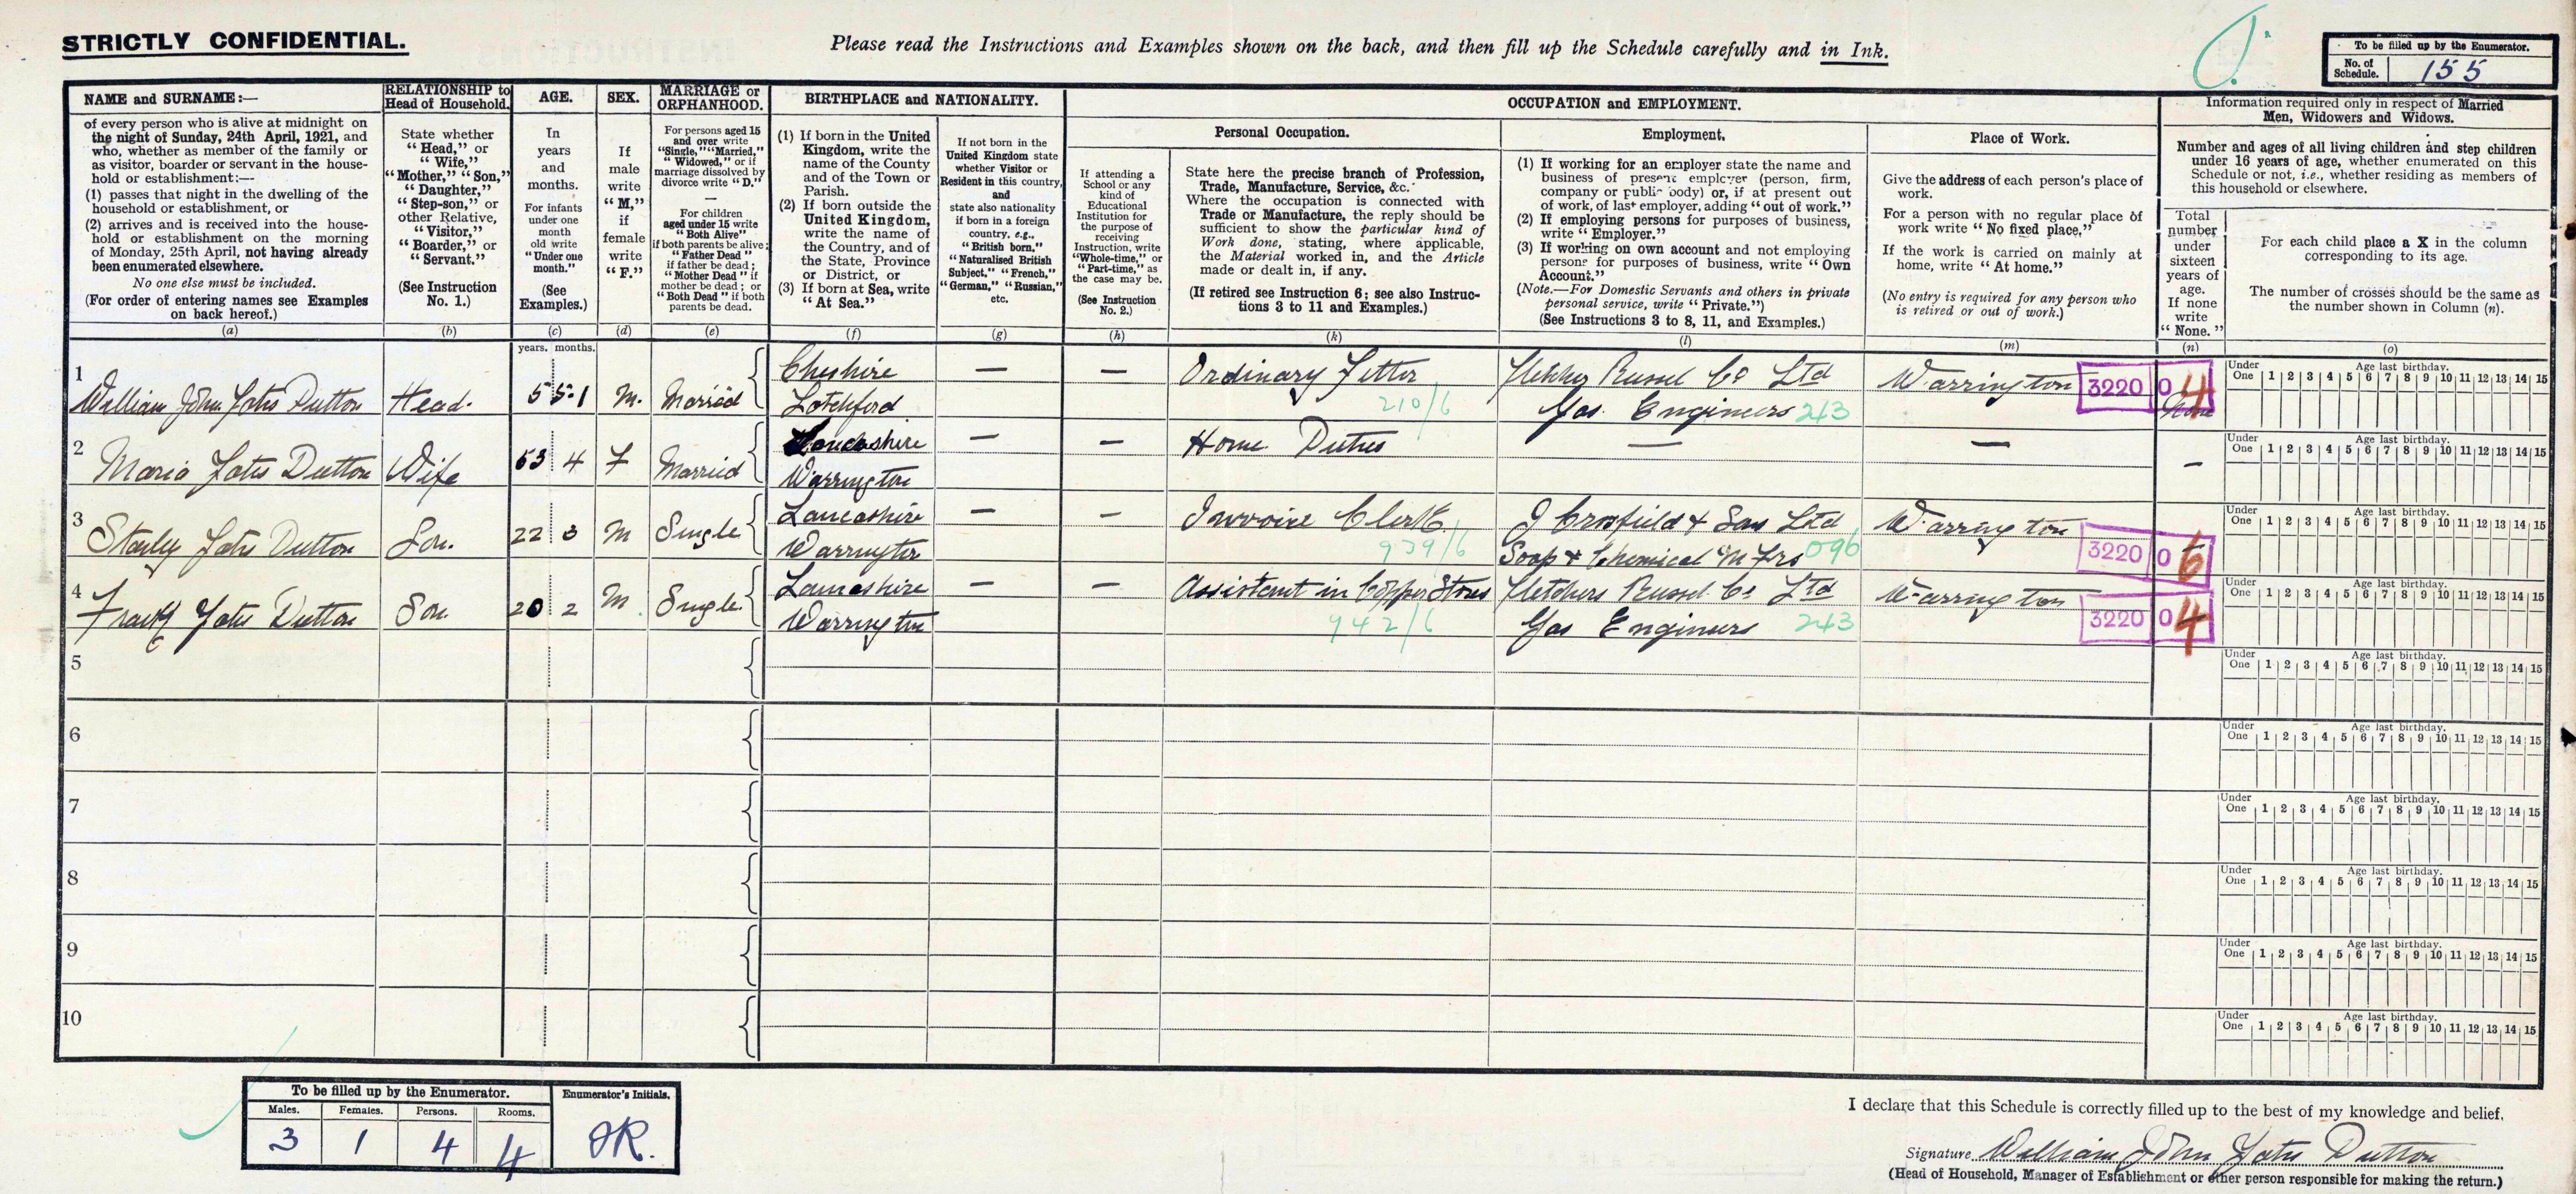 STRICTLY CONFIDENTIAL.
Please read the Instructions and Examples shown on the back, and then fill up the Schedule carefully and in Ink.
To be filled up by the Enumerator.
No. of Schedule. 155
NAME and SURNAME:—
of every person who is alive at midnight on
the night of Sunday, 24th April, 1921, and
who, whether as member of the family or
as visitor, boarder or servant in the house-
hold or establishment:—
(1) passes that night in the dwelling of the
household or establishment, or
(2) arrives and is received into the house-
hold or establishment on the morning
of Monday, 25th April, not having already
been enumerated elsewhere.
No one else must be included.
(For order of entering names see Examples
on back hereof.)
(a)
RELATIONSHIP to
Head of Household.
State whether
"Head," or
"Wife,"
"Mother," "Son,"
"Daughter,"
"Step-son," or
other Relative,
"Visitor,"
"Boarder," or
"Servant."
(See Instruction
No. 1.)
(b)
AGE.
In
years
and
months.
For infants
under one
month
old write
"Under one
month."
(See
Examples.)
(c)
SEX.
If
male
write
"M,"
if
female
write
"F."
(d)
MARRIAGE or
ORPHANHOOD.
For persons aged 15
and over write
"Single," "Married,"
"Widowed," or if
marriage dissolved by
divorce write "D."
For children
aged under 15 write
"Both Alive"
if both parents be alive;
"Father Dead"
if father be dead;
"Mother Dead" if
mother be dead; or
"Both Dead" if both
parents be dead.
(e)
BIRTHPLACE and NATIONALITY.
(1) If born in the United
Kingdom, write the
name of the County
and of the Town or
Parish.
(2) If born outside the
United Kingdom,
write the name of
the Country, and of
the State, Province
or District, or
(3) If born at Sea, write
"At Sea."
(f)
If not born in the
United Kingdom state
whether Visitor or
Resident in this country,
and
state also nationality
if born in a foreign
country, e.g.,
"British born,"
"Naturalised British
Subject," "French,"
"German," "Russian,"
etc.
(g)
OCCUPATION and EMPLOYMENT.
If attending a
School or any
kind of
Educational
Institution for
the purpose of
receiving
Instruction, write
"Whole-time," or
"Part-time," as
the case may be.
(See Instruction
No. 2.)
(h)
Personal Occupation.
State here the precise branch of Profession,
Trade, Manufacture, Service, &c.
Where the occupation is connected with
Trade or Manufacture, the reply should be
sufficient to show the particular kind of
Work done, stating, where applicable,
the Material worked in, and the Article
made or dealt in, if any.
(If retired see Instruction 6; see also Instruc-
tions 3 to 11 and Examples.)
(k)
Employment.
(1) If working for an employer state the name and
business of present employer (person, firm,
company or public body) or, if at present out
of work, of last employer, adding "out of work."
(2) If employing persons for purposes of business,
write "Employer."
(3) If working on own account and not employing
persons for purposes of business, write "Own
Account."
(Note.—For Domestic Servants and others in private
personal service, write "Private.")
(See Instructions 3 to 8, 11, and Examples.)
(l)
Place of Work.
Give the address of each person's place of
work.
For a person with no regular place of
work write "No fixed place,"
If the work is carried on mainly at
home, write "At home."
(No entry is required for any person who
is retired or out of work.)
(m)
Information required only in respect of Married
Men, Widowers and Widows.
Number and ages of all living children and step children
under 16 years of age, whether enumerated on this
Schedule or not, i.e., whether residing as members of
this household or elsewhere.
Total
number
under
sixteen
years of
age.
If none
write
"None."
(n)
For each child place a X in the column
corresponding to its age.
The number of crosses should be the same as
the number shown in Column (n).
(o)
years. months.
1 William John Yates Dutton Head. 55 1 M. Married Cheshire Latchford — — Ordinary Fitter 210/6 Fletcher Russel Co Ltd Gas Engineers 243 Warrington 3220 0 4 None
Under One 1 2 3 4 5 6 7 8 9 10 11 12 13 14 15 Age last birthday.
2 Maria Yates Dutton Wife 53 4 F Married Lancashire Warrington — — Home Duties — — –
Under One 1 2 3 4 5 6 7 8 9 10 11 12 13 14 15 Age last birthday.
3 Stanley Yates Dutton Son. 22 3 M Single Lancashire Warrington — — Invoice Clerk 939/6 J Crosfield & Sons Ltd Soap & Chemical Mfrs 096 Warrington 3220 0 6
Under One 1 2 3 4 5 6 7 8 9 10 11 12 13 14 15 Age last birthday.
4 Frank Yates Dutton Son. 20 2 M Single Lancashire Warrington — — Assistant in Copper Stores 942/6 Fletchers Russel Co Ltd Gas Engineers 243 Warrington 3220 0 4
Under One 1 2 3 4 5 6 7 8 9 10 11 12 13 14 15 Age last birthday.
5
Under One 1 2 3 4 5 6 7 8 9 10 11 12 13 14 15 Age last birthday.
6
Under One 1 2 3 4 5 6 7 8 9 10 11 12 13 14 15 Age last birthday.
7
Under One 1 2 3 4 5 6 7 8 9 10 11 12 13 14 15 Age last birthday.
8
Under One 1 2 3 4 5 6 7 8 9 10 11 12 13 14 15 Age last birthday.
9
Under One 1 2 3 4 5 6 7 8 9 10 11 12 13 14 15 Age last birthday.
10
Under One 1 2 3 4 5 6 7 8 9 10 11 12 13 14 15 Age last birthday.
To be filled up by the Enumerator.
Males. Females. Persons. Rooms.
3 1 4 4
Enumerator's Initials.
I declare that this Schedule is correctly filled up to the best of my knowledge and belief.
Signature William John Yates Dutton
(Head of Household, Manager of Establishment or other person responsible for making the return.)